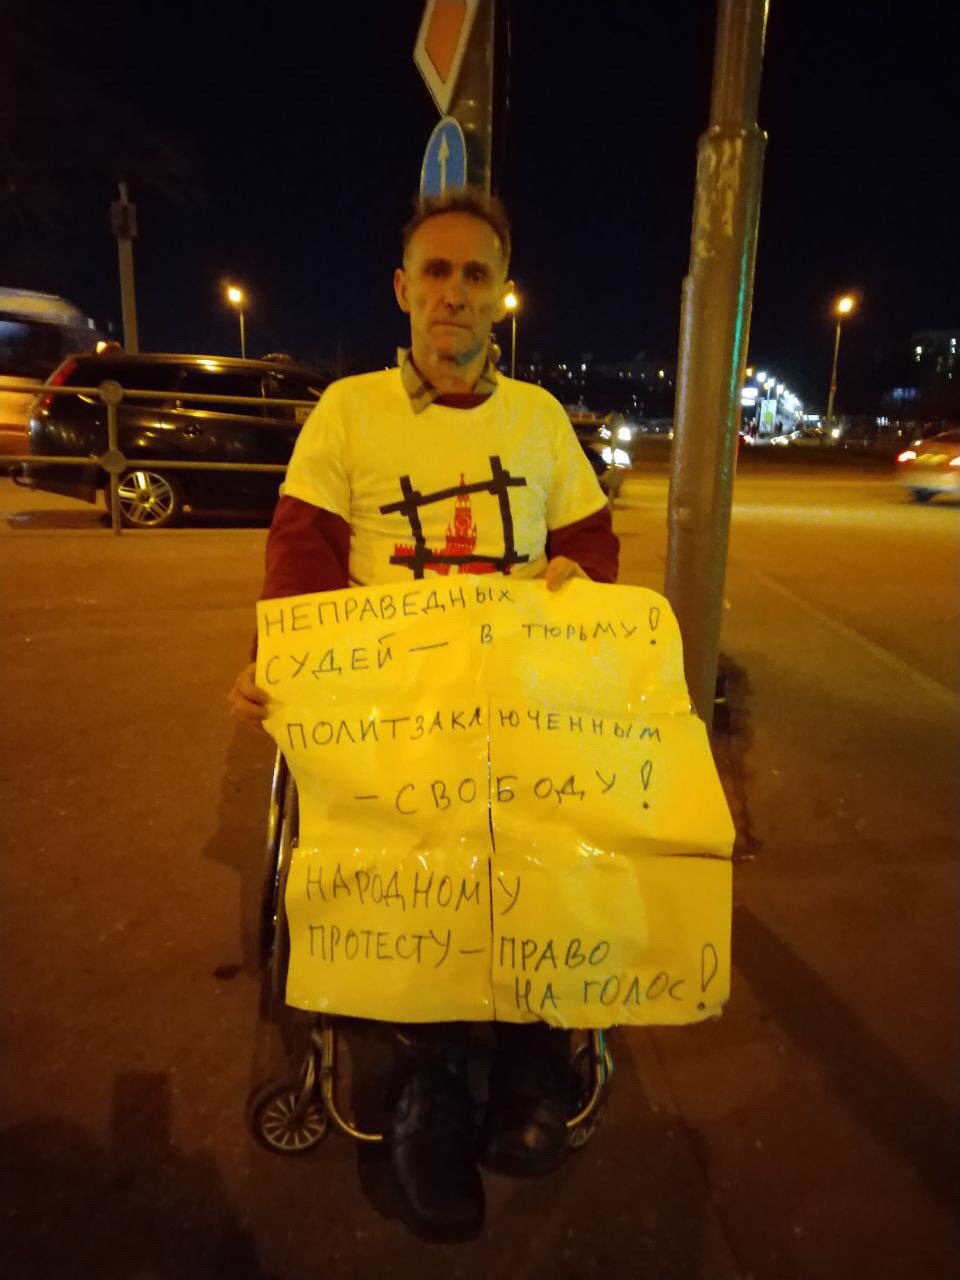 НЕПРАВЕДНЫХ
СУДЕЙ — В ТЮРЬМУ!
ПОЛИТЗАКЛЮЧЕННЫМ
— СВОБОДУ!
НАРОДНОМУ
ПРОТЕСТУ — ПРАВО
НА ГОЛОС!